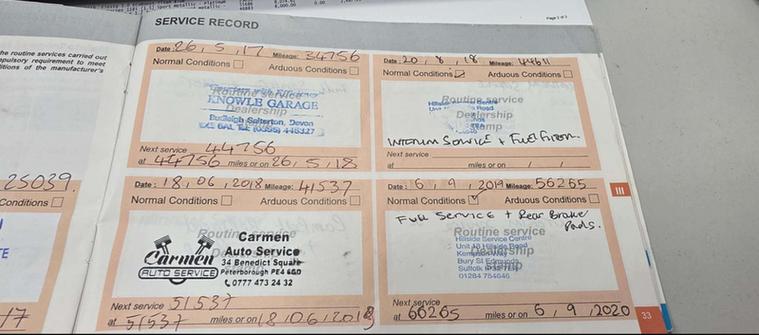 SERVICE RECORD
Page 2 of 2
he routine services carried out
mpulsory requirement to meet
itions of the manufacturer's
25039
Conditions
17
Date: 26, 5, 17 Mileage: 34756
Normal Conditions Arduous Conditions
Routine service
KNOWLE GARAGE
Dealership
Budleigh Salterton, Devon
Next service 44756
at 44756 miles or on 26, 5, 18
Date: 20, 8, 18 Mileage: 44611
Normal Conditions Arduous Conditions
Routine service
Hillside Centre
Road
Dealership
Stamp
INTERIM SERVICE + FUEL FILTER.
Next service
at miles or on / /
Date: 18, 06, 2018 Mileage: 41537
Normal Conditions Arduous Conditions
Routine
Carmen
Auto Service
34 Benedict Square
Peterborough PE4 6GD
0777 473 24 32
Carmen
AUTO SERVICE
Next service 51537
at 51537 miles or on 18, 06, 2019
Date: 6, 9, 2019 Mileage: 56265
Normal Conditions Arduous Conditions
FULL SERVICE + Rear Brake
Pads.
Routine service
Hillside Service Centre
Unit Hillside Road
Dealership
Bury St Edmunds
Stamp
Suffolk
01284
Next service
at 66265 miles or on 6, 9, 2020
III
33